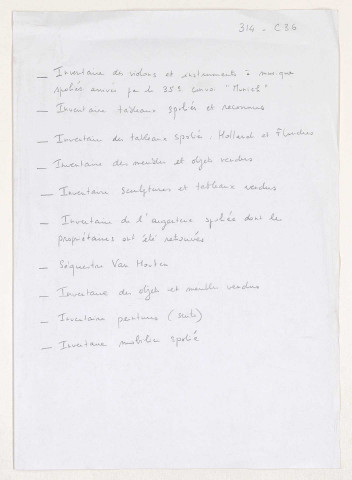 314 - C36
— Inventaire des violons et instruments à musique
spoliés envoi par le 352 convoi "Munich"
— Inventaire tableaux spoliés et reconnus
— Inventaire des tableaux spoliés. Hollande et Flandres
— Inventaire des meubles et objets vendus
— Inventaire sculptures et tableaux vendus
— Inventaire de l'argenterie spoliée dont les
propriétaires ont été retrouvés
— Séquestre Van
— Inventaire des objets et meubles vendus
— Inventaire peintures (suite)
— Inventaire mobilier spolié